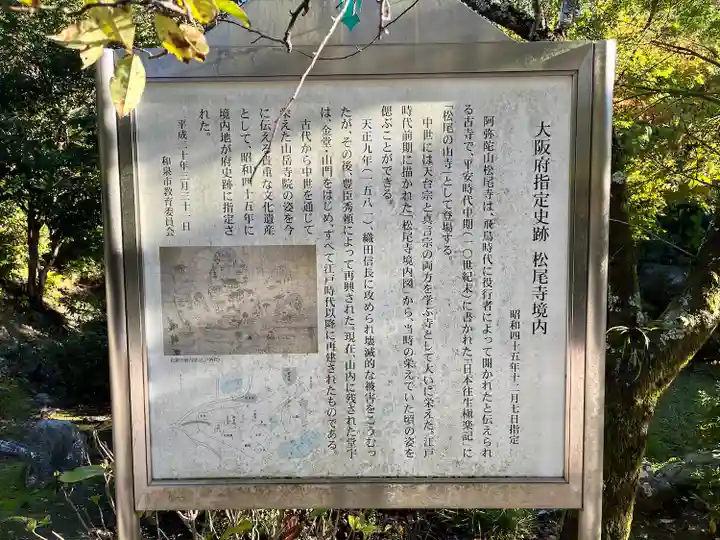 大阪府指定史跡 松尾寺境内
昭和四十五年十二月七日指定
阿弥陀山松尾寺は、飛鳥時代に役行者によって開かれたと伝えられ
る古寺で、平安時代中期(一〇世紀末)に書かれた「日本往生極楽記」に
「松尾の山寺」として登場する。
中世には天台宗と真言宗の両方を学ぶ寺として大いに栄えた。江戸
時代前期に描かれた「松尾寺境内図」から、当時の栄えていた頃の姿を
偲ぶことができる。
天正九年(一五八一)、織田信長に攻められ壊滅的な被害をこうむっ
たが、その後、豊臣秀頼によって再興された。現在、山内に残された堂宇
は、金堂・山門をはじめ、すべて江戸時代以降に再建されたものである。
古代から中世を通じて
栄えた山岳寺院の姿を今
に伝える貴重な文化遺産
として、昭和四十五年に
境内地が府史跡に指定さ
れた。
平成二十年三月三十一日
和泉市教育委員会